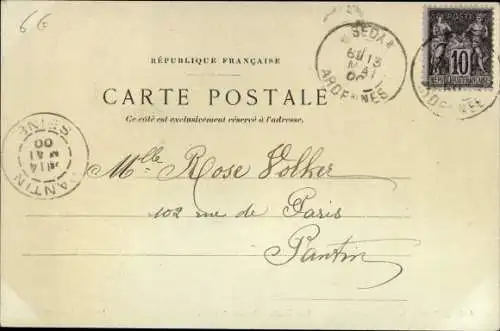 66
SEDAN
13
MAI
00
ARDENNES
POSTE
10
RÉPUBLIQUE FRANÇAISE
ARDENNES
RÉPUBLIQUE FRANÇAISE
CARTE POSTALE
Ce côté est exclusivement réservé à l'adresse.
PANTIN
14
MAI
00
SEINE
Mlle Rose Volker
102 rue de Paris
Pantin